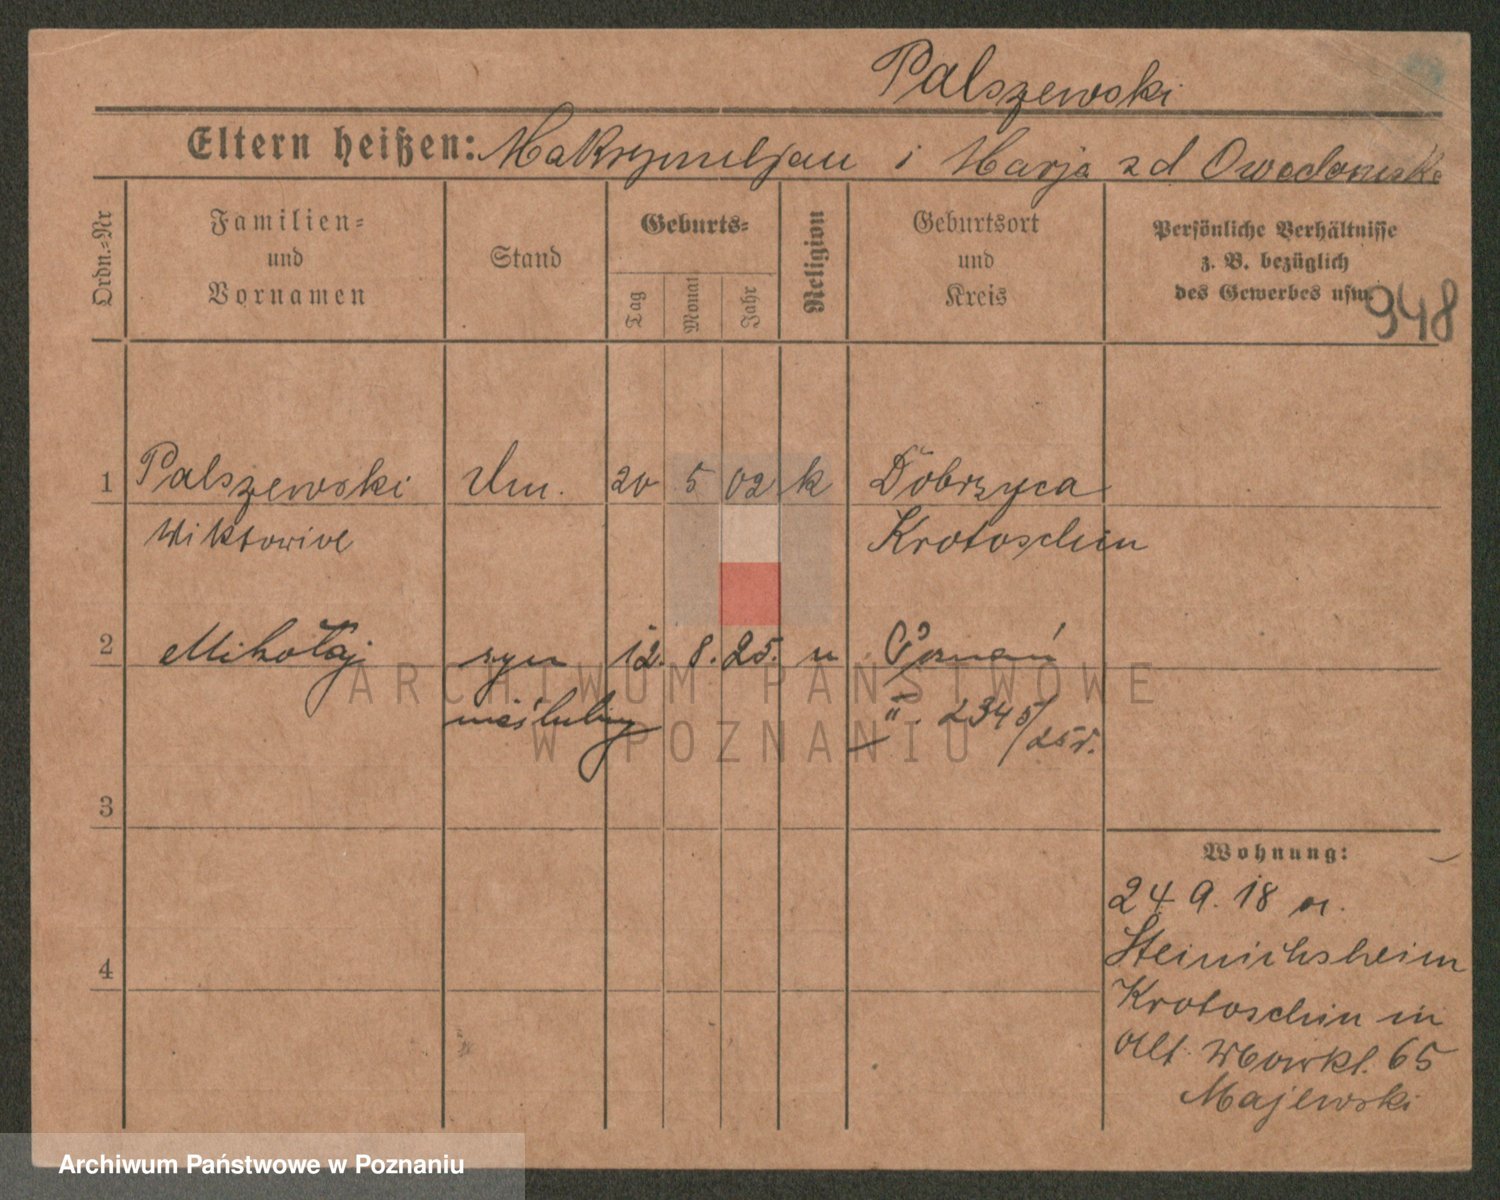 Palszewski
Eltern heißen: Maksymiljan i Marja zd
Ordn.=Nr
Familien=
und
Vornamen
Stand
Geburts=
Tag
Monat
Jahr
Religion
Geburtsort
und
Kreis
Persönliche Verhältnisse
z. B. bezüglich
des Gewerbes usw.
948
1 Palszewski 20 5 02 k Dobrzyca
Krotoschin
2 Mikołaj syn 12. 8. 25. Poznań
nieślubny II. 2345/25 r.
3
Wohnung:
24 9. 18 
Krotoschin in
4
Alt 65
Majewski
ARCHIWUM PAŃSTWOWE
W POZNANIU
Archiwum Państwowe w Poznaniu